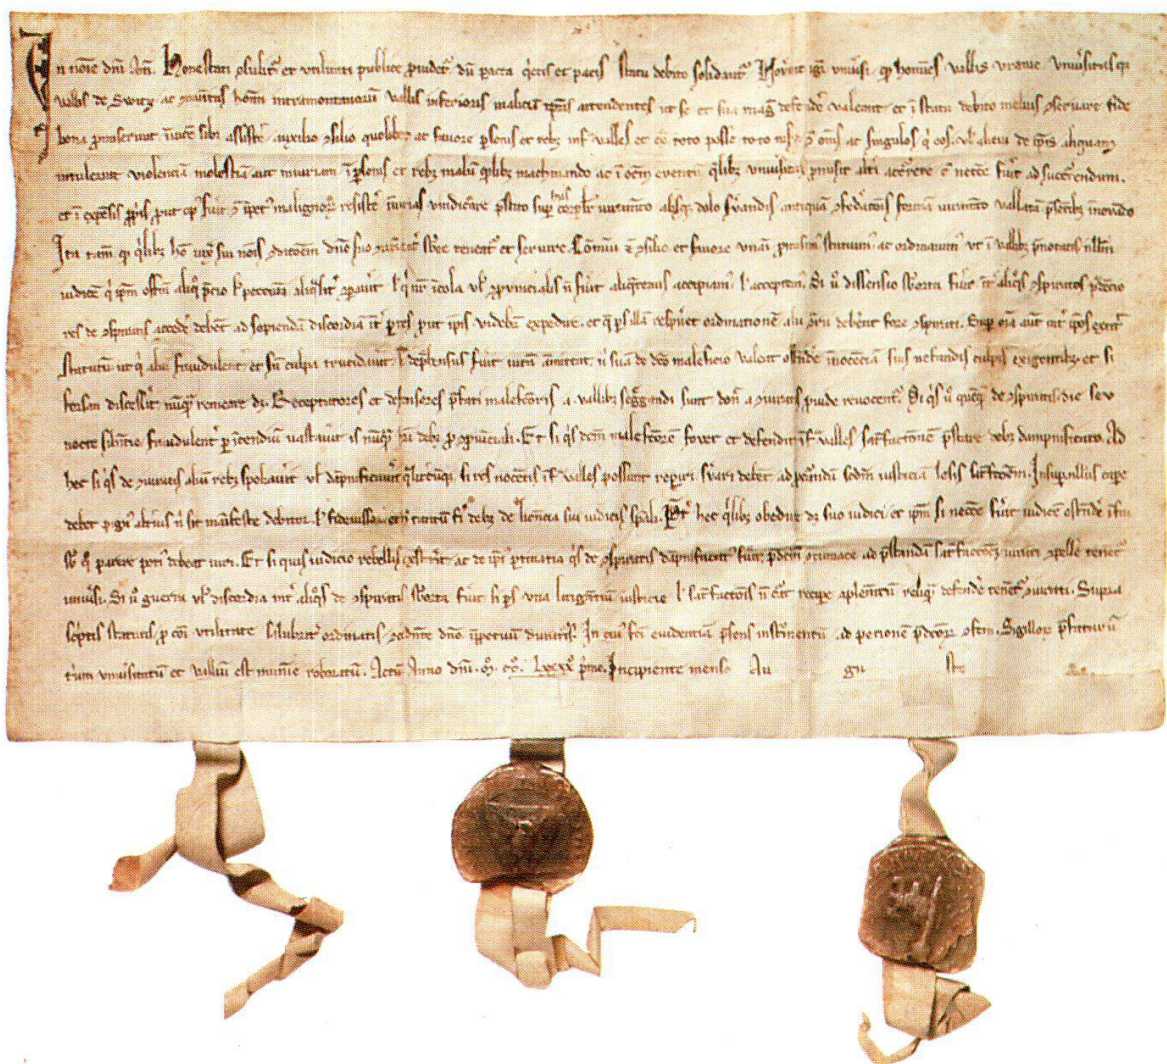 In noīe dn̄i Am̄. Honestati ꝯsulit᷑ et utilitati publice ꝓuidet᷑ dū pacta q̇etis et pacis statu debito solidant᷑ Nouerint igit᷑ uniusi. qd̕ homines vallis vranie vniu̕sitas q̕
vallis de Switz ac ꝯmunitas hom̄ intramontanorū vallis inferioris maliciā tp̄ris attendentes ut se et sua mag̕ defendē valeant et ī statu debito melius ꝯseruare fide
bona ꝓmiserunt īuicē sibi assistē auxilio ꝯsilio quolibꝫ ac fauore p̱sonis et rebꝫ inf̕ valles et ex̄ toto posse toto nisu ꝯ om̄s ac singulos q̇ eos vl̕ alicui de ip̄is aliquam
intulerint violenciā molestiā aut iniuriam ī p̱sonis et rebꝫ malū q̇libꝫ machinando ac ī oēm euentū q̇libꝫ vniu̕sitas ꝓmisit alt̕i accurrere cū necesse fuit ad succurrendum.
et ī expensis ꝓṗis, put op̕ fuit ꝯ īpet᷑ malignorū resistē iniurias vindicare p̄stito sup̱ hiis corp̱alit᷑ iuramto absqꝫ dolo s̕uandis antiquā ꝯfederacōis formā iuramto vallatā p̄sentibꝫ innouando
Ita tam̄ qd̕ q̇libꝫ homo iux̄ sui nōis ꝯditōem dn̄o suo ꝯuenient̕ sb̕ee teneat᷑ et seruire. Cōmuni &c ꝯsilio et fauore unaī. ꝓmisim̕ statuim̕ ac ordinauim̕ ut ī vallibꝫ p̄notatis nll̄m
iudicē q̇ ip̄m officiū aliq̊ p̄cio l̕ peccunia aliq̊lit᷑ ꝯparauit l̕ q̇ nr̄ īcola vl̕ ꝯprouincialis n̄ fuit aliq̊tenus accipiam̕ l̕ acceptem̕. Si ū dissensio sb̕orta fuit int̕ aliq̊s ꝯspiratos p̕dencio
res de ꝯspiratis accedē debent ad sopiendā discordiā int̕ p̱tes put ip̄is videbit᷑ expedire. et q̄ p̱s illā respueret ordinationē alii ꝯrii deberent fore ꝯspirati. Sup̱ om̄ia aut̄ int̕ ip̄os extitit
statutū ut q̇ aliū fraudulent᷑ et sn̄ culpa trucidauit. si dep̱hensus fuit uitā ammittat. n̄ suā de dc̄o maleficio valeat ostendē īnocēciā suis nefandis culpis exigentibꝫ. et si
forsan discessit nūqꝫ remeare dꝫ. Receptatores et defensores p̄fati malefcōris a vallibꝫ segregandi sunt donec a ꝯiuratis ꝓuide reuocent᷑. Si q̇s ū quēqꝫ de ꝯspiratis die seu
nocte silentio fraudulent᷑ p̱ īcendiū uastauit is nūqꝫ hrī debꝫ ꝓ ꝯprouinciali. Et si q̇s dc̄m malefcōrē fouet et defendit inf̕ valles satisfactionē p̄stare debꝫ dampnificato. Ad
hec si q̇s de ꝯiuratis aliū rebꝫ spoliauit vl̕ dāpnificauit q̊litcūqꝫ si res nocētis inf̕ valles possunt rep̱iri s̕uari debent ad p̱curādā scdm̄ iusticiā lesis satisfcōm. Insup̱ nll̄us cap̱e
debet pign̕ alti̕us n̄ sit manifeste debitor l̕ fideiussor. et hc̄ tantū fi̕ debꝫ de licencia sui iudicis sp̄ali. Pt̕ hec q̇libꝫ obedire dꝫ suo iudici et ip̄m si necesse fuit iudicē ostendē inf̕iu
sb̕ q̊ parere poti̕ debeat iuri. Et si quis iudicio rebellis exstitit ac de ip̄i̕ ꝑtinatia q̇s de ꝯspiratis dāpnificat̕ fuit p̄dc̄m ꝯtumacē ad p̄standā satisfaccōem iurati ꝯpellē tenent᷑
uniusi. Si ū guerra vl̕ discordia int̕ aliq̊s de ꝯspiratis sb̕orta fuit si p̱s una litigantiū iusticie l̕ satisfaccōis n̄ curat recipe ꝯplementū reliquā defendē tenent᷑ ꝯiurati. Supra
sc̕ptis statutis ꝓ cōi vtilitate salubrit᷑ ordinatis ꝯcedente dn̄o īppetuū duraturis. In cui̕ fc̄i euidentiā p̄sens instrumentū ad peticionē p̄dc̄orꝫ ꝯfc̄m. Sigillorꝫ p̄fatarum
trium vniu̕sitatum et valliū est munimīe roboratū. Actū Anno dn̄i. ꝏ. cc̊. Lxxxx̊ primo. Incipiente mense Au gu sto